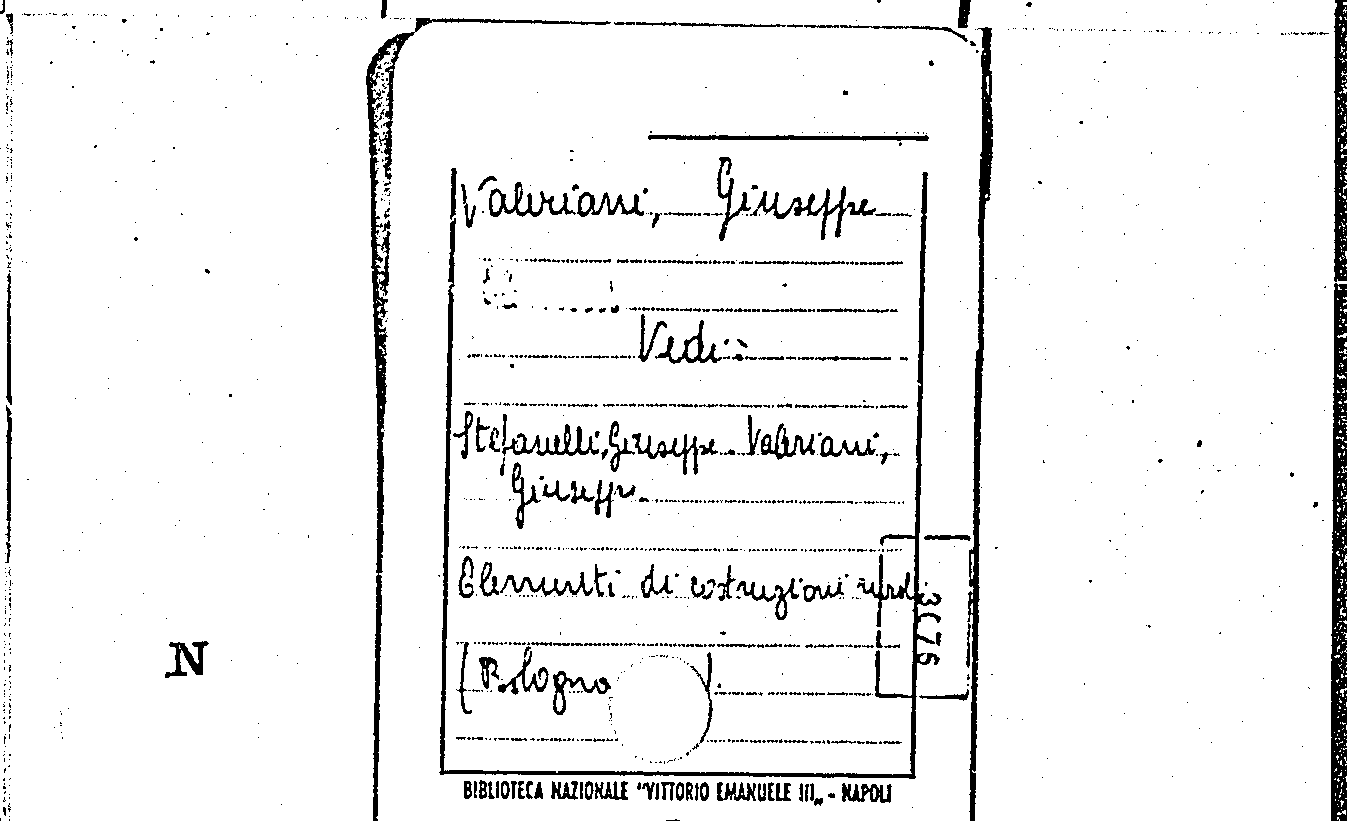 Valeriani, Giuseppe
Vedi:
Stefanelli, Giuseppe. Valeriani,
Giuseppe.
Elementi di costruzioni rurali
3C76
N
(Bologna ).
BIBLIOTECA NAZIONALE "VITTORIO EMANUELE III„ - NAPOLI